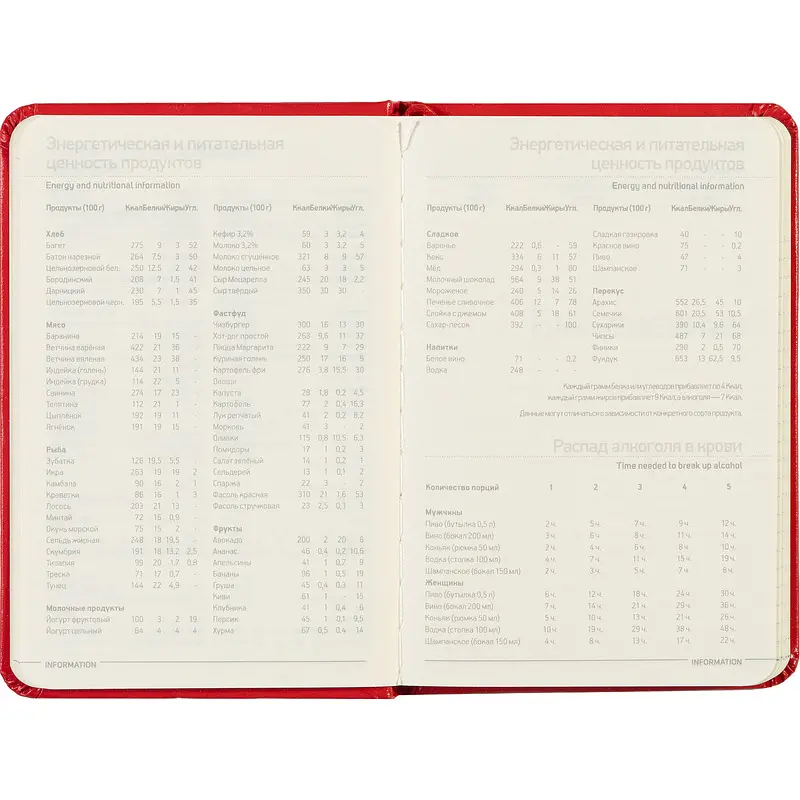 Энергетическая и питательная
ценность продуктов
Energy and nutritional information
Продукты (100 г) Ккал Белки Жиры Угл.
Хлеб
Багет 275 9 3 52
Батон нарезной 264 7,5 3 50
Цельнозерновой бел. 250 12,5 2 42
Бородинский 208 7 1,5 41
Дарницкий 230 7 1 45
Цельнозерновой черн. 195 5,5 1,5 35
Мясо
Баранина 214 19 15 -
Ветчина варёная 422 21 36 -
Ветчина вяленая 434 23 38 -
Индейка (голень) 144 21 11 -
Индейка (грудка) 114 22 5 -
Свинина 274 17 23 -
Телятина 112 21 1 -
Цыплёнок 192 19 11 -
Ягнёнок 191 19 15 -
Рыба
Зубатка 126 19,5 5,5
Икра 263 19 19 2
Камбала 90 16 2 1
Креветки 86 16 1 3
Лосось 203 21 13 -
Минтай 72 16 0,9 -
Окунь морской 75 15 2 -
Сельдь жирная 248 18 19,5 -
Скумбрия 191 18 13,2 2,5
Тилапия 99 20 1,7 0,8
Треска 71 17 0,7 -
Тунец 144 22 4,9 -
Молочные продукты
Йогурт фруктовый 100 3 2 19
Йогурт цельный 64 4 4 4
INFORMATION
Продукты (100 г) Ккал Белки Жиры Угл.
Кефир 3,2% 59 3 3,2 4
Молоко 3,2% 60 3 3,2 5
Молоко сгущённое 321 8 9 57
Молоко цельное 63 3 3 5
Сыр Моцарелла 245 20 18 2,2
Сыр твёрдый 350 30 30 -
Фастфуд
Чизбургер 300 16 13 30
Хот-дог простой 263 9,6 11 32
Пицца Маргарита 222 9 7 29
Куриная голень 250 17 16 9
Картофель фри 276 3,8 15,5 30
Овощи
Капуста 28 1,8 0,2 4,5
Картофель 77 2 0,4 16,3
Лук репчатый 41 2 0,2 8,2
Морковь 41 3 - 2
Оливки 115 0,8 10,5 6,3
Помидоры 17 1 0,2 3
Салат зелёный 14 1 0,2 1
Сельдерей 13 1 0,1 2
Спаржа 22 3 - 2
Фасоль красная 310 21 1,6 53
Фасоль стручковая 23 2,5 0,1 3
Фрукты
Авокадо 200 2 20 6
Ананас 46 0,4 0,2 10,6
Апельсины 41 1 0,7 9
Бананы 96 1 0,5 19
Груша 45 0,4 0,3 11
Киви 61 1 - 15
Клубника 41 1 0,4 6
Персик 45 1 0,1 9,5
Хурма 67 0,5 0,4 14
Энергетическая и питательная
ценность продуктов
Energy and nutritional information
Продукты (100 г) Ккал Белки Жиры Угл.
Сладкое
Варенье 222 0,6 - 59
Кекс 334 6 11 57
Мёд 294 0,3 1 80
Молочный шоколад 564 9 38 51
Мороженое 240 5 14 26
Печенье сливочное 406 12 7 78
Слойка с джемом 408 5 18 61
Сахар-песок 392 - - 100
Напитки
Белое вино 71 - - 0,2
Водка 248 - - -
Продукты (100 г) Ккал Белки Жиры Угл.
Сладкая газировка 40 - - 10
Красное вино 75 - - 0,2
Пиво 47 - - 4
Шампанское 71 - - 3
Перекус
Арахис 552 26,5 45 10
Семечки 601 20,5 53 10,5
Сухарики 390 10,4 9,6 64
Чипсы 487 7 21 68
Финики 290 2 0,5 70
Фундук 653 13 62,5 9,5
Каждый грамм белка или углеводов прибавляет по 4 Ккал,
каждый грамм жиров прибавляет 9 Ккал, а алкоголя — 7 Ккал.
Данные могут отличаться в зависимости от конкретного сорта продукта.
Распад алкоголя в крови
Time needed to break up alcohol
Количество порций 1 2 3 4 5
Мужчины
Пиво (бутылка 0,5 л) 2 ч. 5 ч. 7 ч. 9 ч. 12 ч.
Вино (бокал 200 мл) 3 ч. 6 ч. 8 ч. 11 ч. 14 ч.
Коньяк (рюмка 50 мл) 2 ч. 4 ч. 6 ч. 8 ч. 10 ч.
Водка (стопка 100 мл) 4 ч. 7 ч. 11 ч. 15 ч. 19 ч.
Шампанское (бокал 150 мл) 2 ч. 3 ч. 5 ч. 7 ч. 8 ч.
Женщины
Пиво (бутылка 0,5 л) 6 ч. 12 ч. 18 ч. 24 ч. 30 ч.
Вино (бокал 200 мл) 7 ч. 14 ч. 21 ч. 29 ч. 36 ч.
Коньяк (рюмка 50 мл) 5 ч. 10 ч. 13 ч. 21 ч. 26 ч.
Водка (стопка 100 мл) 10 ч. 19 ч. 29 ч. 38 ч. 48 ч.
Шампанское (бокал 150 мл) 4 ч. 8 ч. 13 ч. 17 ч. 22 ч.
INFORMATION